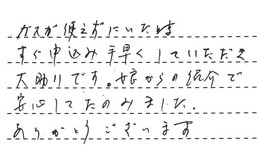 ガスが使えずにいた時
すぐ申込み手早くしていただき
大助りです。娘からの紹介で
安心してたのみました。
ありがとうございます